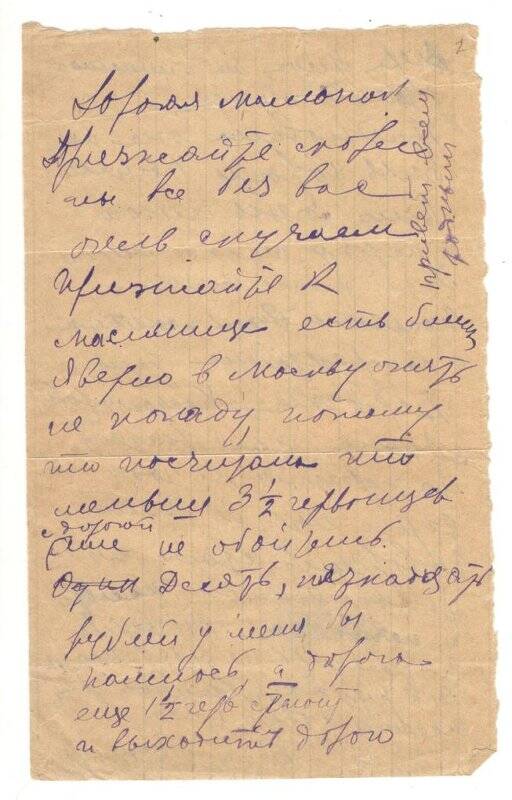 Дорогая мамочка
Приезжайте скорее
мы все без вас
очень скучаем
приезжайте к
масляннице есть блины
Я верно в Москву опять
не попаду, потому
что посчитали что
меньше 3 ½ червонцев
с дорогой
не обойдешь.
Один Десять, пятнадцать
рублей у меня бы
нашлось, а дорога
еще 1 ½ черв стоит
и выходит дорого
привет всем
родным
2